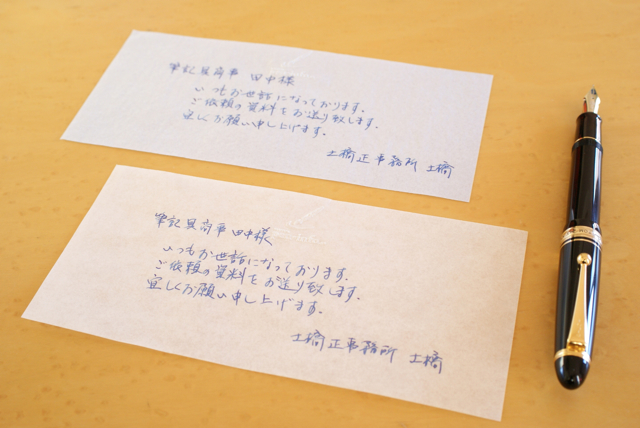 筆記具商事 田中様
いつもお世話になっております.
ご依頼の資料をお送り致します.
宜しくお願い申し上げます.
土橋正事務所 土橋
筆記具商事 田中様
いつもお世話になっております.
ご依頼の資料をお送り致します.
宜しくお願い申し上げます.
土橋正事務所 土橋